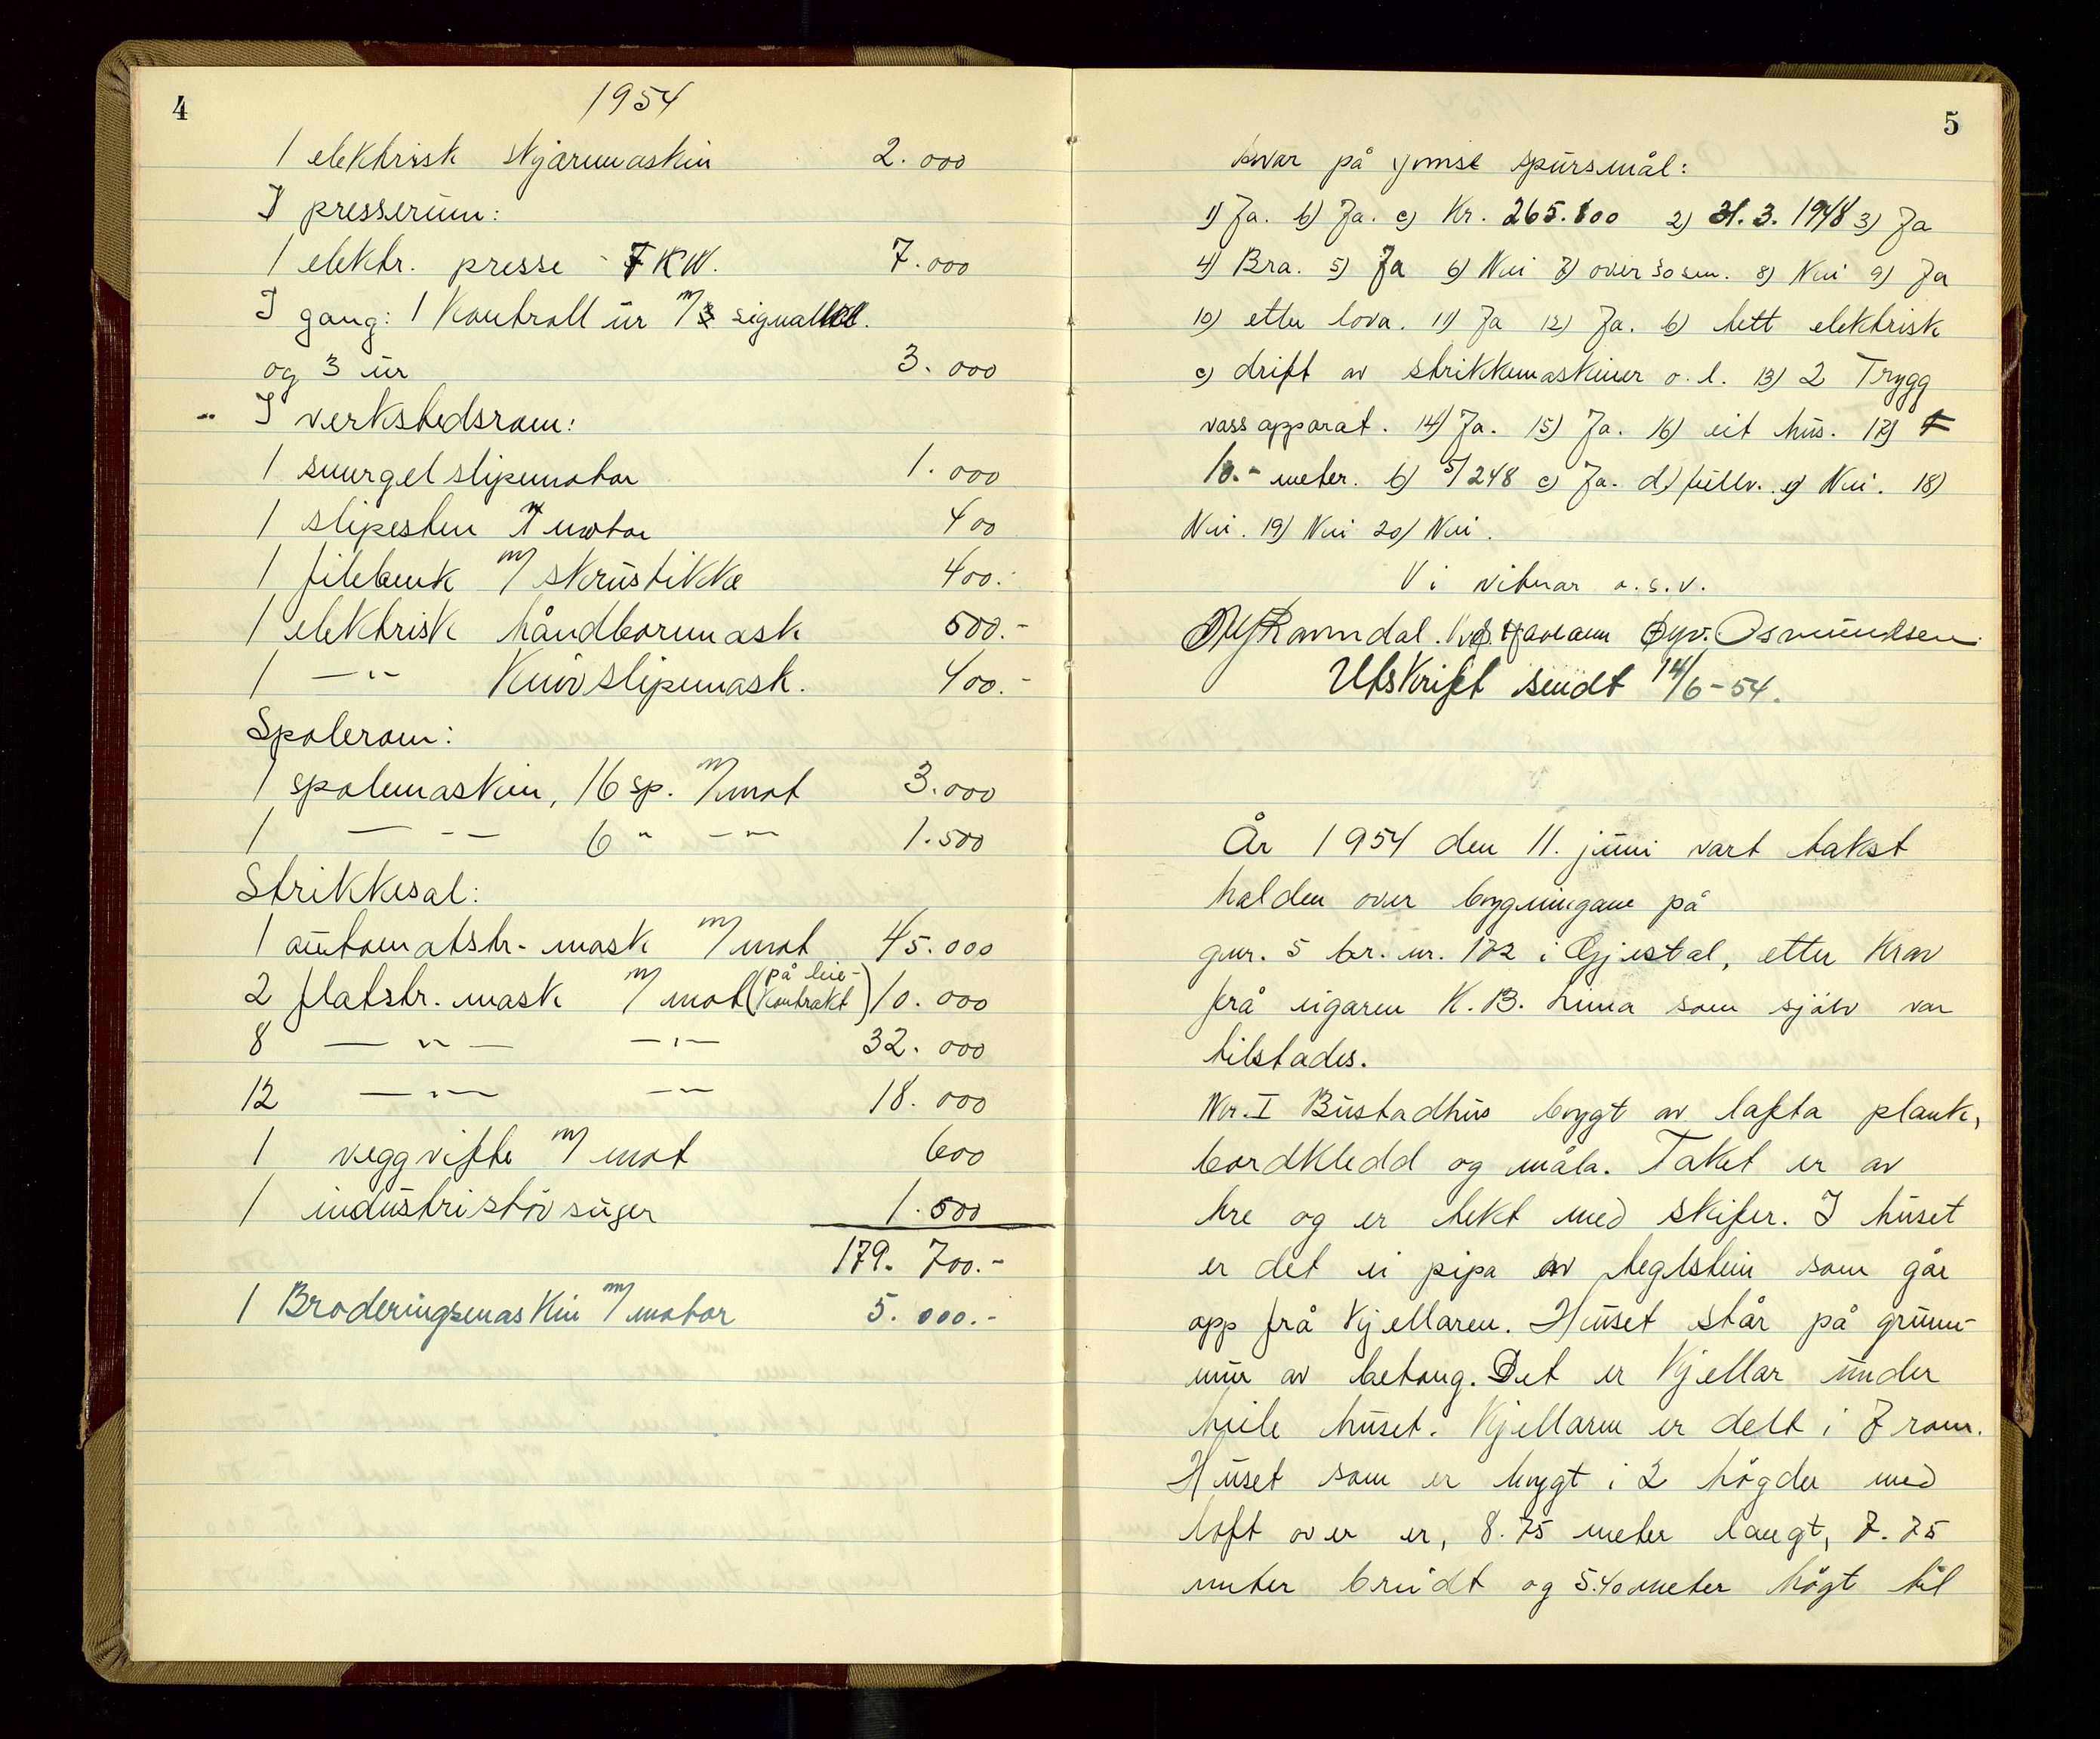 4
1954
1 elektrisk skjæremaskin 2.000
I presserum:
1 elektr. presse - 7 KW. 7.000
I gang: 1 Kontroll ur m/3 signal
og 3 ur 3.000
" I verkstedsrom:
1 smergel slipemotor 1.000
1 slipesten m/ motor 400
1 filebenk m/ skrustikke 400.-
1 elektrisk håndboremask 500.-
1 — " — Knivslipemask. 400.-
Spolerom:
1 spolemaskin, 16 sp. m/mot 3.000
1 — " — 6 " — " — 1.500
Strikkesal:
1 automatstr.- mask m/ mot 45.000
2 flatstr. mask m/ mot (på leie-kontrakt) 10.000
8 — " — — " — 32.000
12 — " — — " — 18.000
1 veggvifte m/ mot 600
1 industristøvsuger 1.500
179.700.-
1 Broderingsmaskin m/ motor 5.000.-
5
Svar på ymse spursmål:
1) Ja. b) Ja. c) Kr. 265.800 2) 31.3.1948 3) Ja
4) Bra. 5) Ja 6) Nei 7) over 50 sm. 8) Nei 9) Ja
10) etter lova. 11) Ja 12) Ja. b) lett elektrisk
c) drift av strikkemaskiner o.l. 13) 2 Trygg
vassapparat. 14) Ja. 15) Ja. 16) eit hus. 17)
10.- meter. b) 5/248 c) Ja. d) fullv. e) Nei. 18)
Nei. 19) Nei 20) Nei.
Vi vitnar o.s.v.
Ramndal. Øyv. Osmundsen
Utskrift sendt 14/6-54.
År 1954 den 11. juni vart takst
halden over bygningane på
gnr. 5 br. nr. 172 i Gjestal, etter krav
frå eigaren K. B. Lima som sjølv var
tilstades.
Nr. I Bustadhus bygt av lafta plank,
bordkledd og måla. Taket er av
tre og er tekt med skifer. I huset
er det ei pipa av teglstein som går
opp frå kjellaren. Huset står på grunn-
mur av betong. Det er kjellar under
heile huset. Kjellaren er delt i 7 rom.
Huset som er bygt i 2 høgder med
loft over er, 8.75 meter langt, 7.75
meter breidt og 5.40 meter høgt til